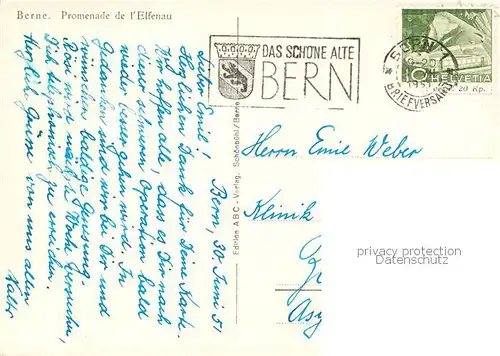 Berne. Promenade de l'Elfenau
Bern, 30 Juni 51
Lieber Emil!
Herzlichen Dank für Deine Karte.
Wir hoffen alle, dass es Dir nach
dieser schweren Operation bald
wieder besser gehen wird. In
Gedanken sind wir bei Dir und
wünschen baldige Genesung.
Rösi wird nächste Woche versuchen,
Dich telephonisch zu erreichen.
Herzlich Grüsse von uns allen
Walter
Edition ABC - Verlag, Schönbühl/Berne
DAS SCHÖNE ALTE
BERN
BERN
BRIEFVERSAND
10 HELVETIA
20 Rp.
Herrn Emil Weber
Klinik
privacy protection
AKPOOL.DE